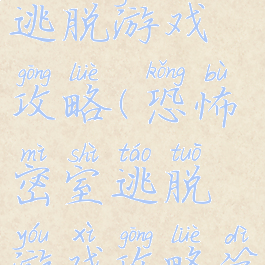 逃脱游戏
gōng lüè kǒng bù
攻略(恐怖
mì shì táo tuō
密室逃脱
yóu xì gōng lüè dì
游戏攻略